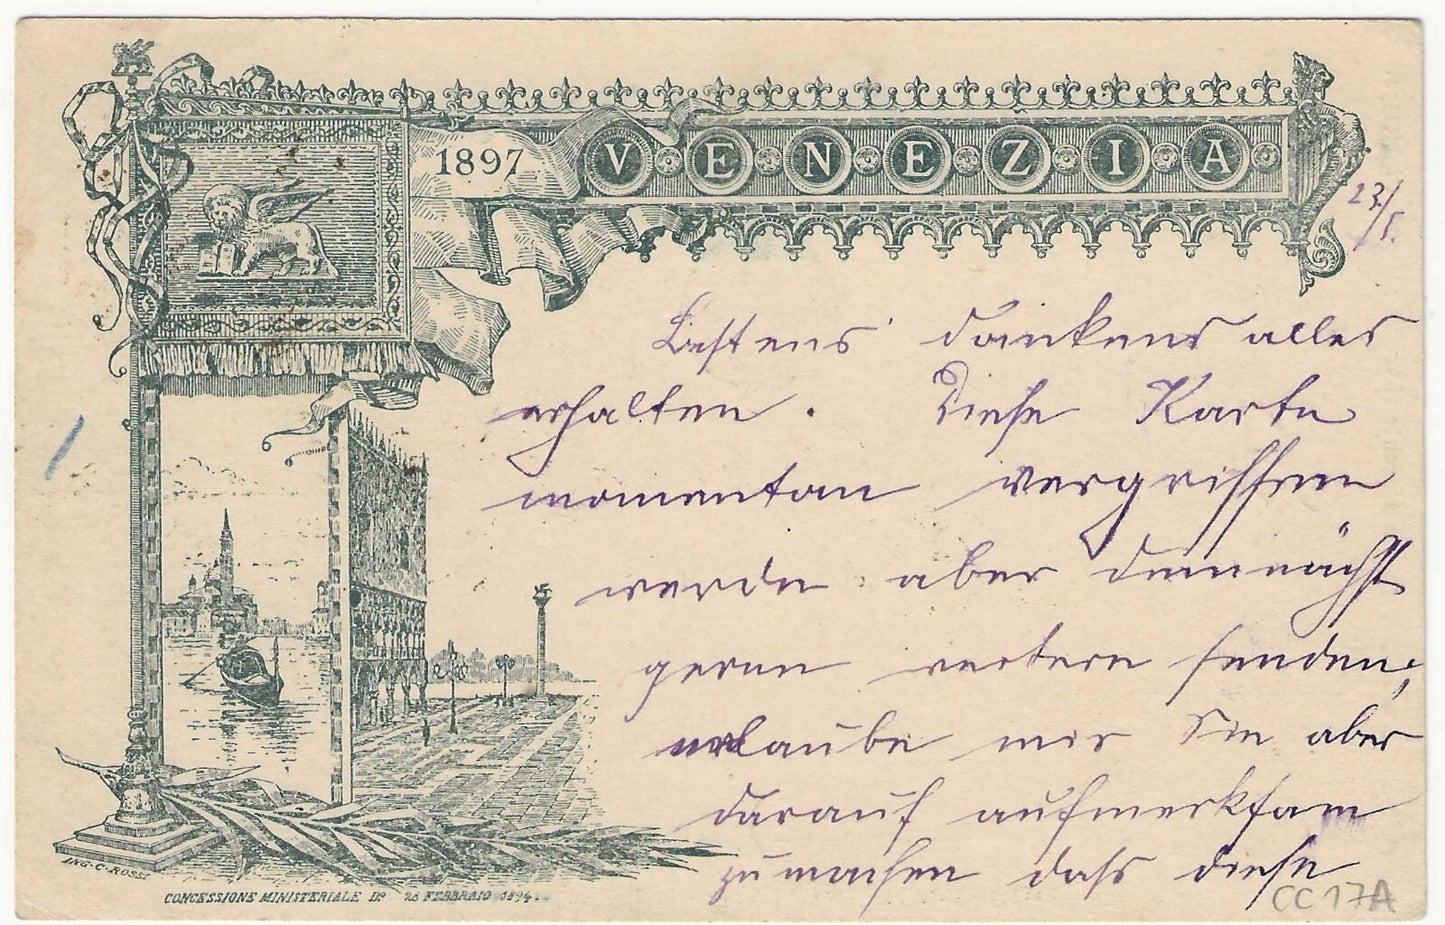 1897 VENEZIA
23./5.
Bestens dankend alles
erhalten. Diese Karte
momentan vergriffen
werde aber demnächst
gerne weitere senden,
erlaube mir Sie aber
darauf aufmerksam
zu machen daß diese
CC 17A
ING. C. ROSSI
CONCESSIONE MINISTERIALE Dº 28 FEBBRAIO 1894